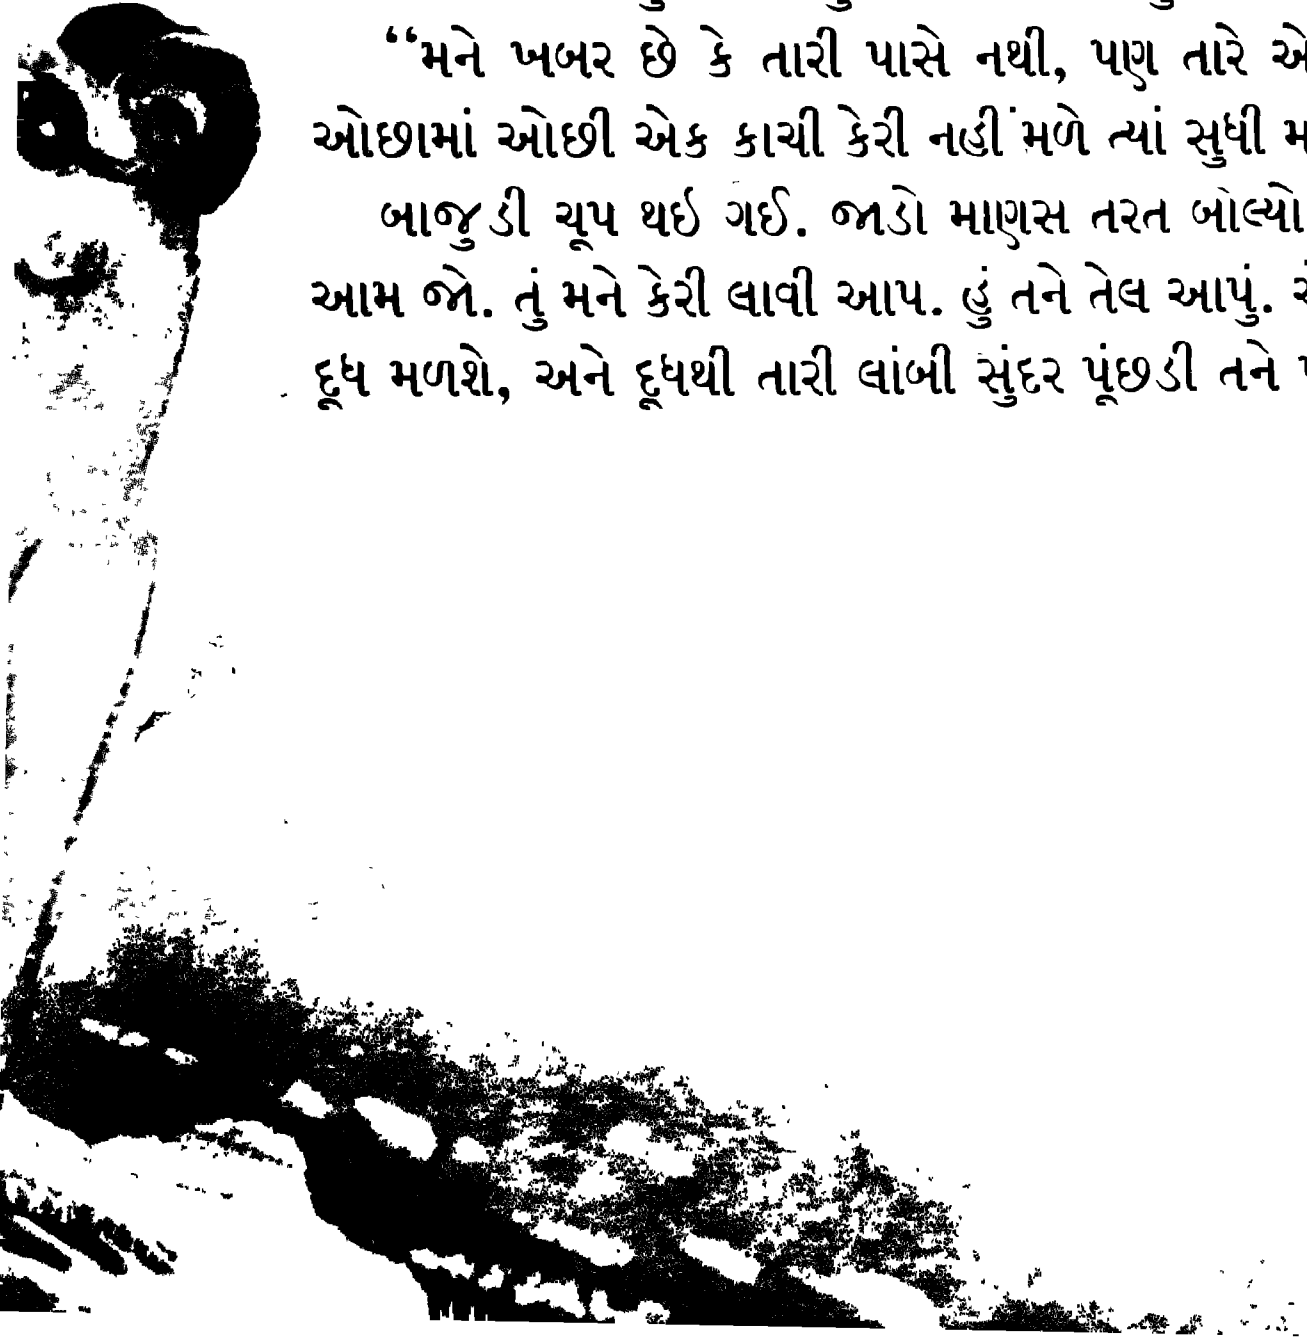 “મને ખબર છે કે તારી પાસે નથી, પણ તારે
ઓછામાં ઓછી એક કાચી કેરી નહીં મળે ત્યાં સુધી
બાજુડી ચૂપ થઇ ગઈ. જાડો માણસ તરત બોલ્યો
આમ જો. તું મને કેરી લાવી આપ. હું તને તેલ આપું.
દૂધ મળશે, અને દૂધથી તારી લાંબી સુંદર પૂંછડી તને